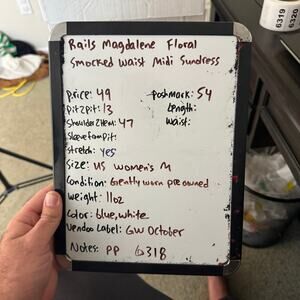 Rails Magdalene Floral
Smocked Waist Midi Sundress
Price: 49
Poshmark: 54
Pit2pit: 13
Length:
Shoulder2Hem: 47
Waist:
Sleevetompit:
Stretch: yes
Size: US Women's M
Condition: Gently worn pre owned
Weight: 11oz
Color: blue, white
Vendoo Label: GW October
Notes: PP 6318
6319
6320